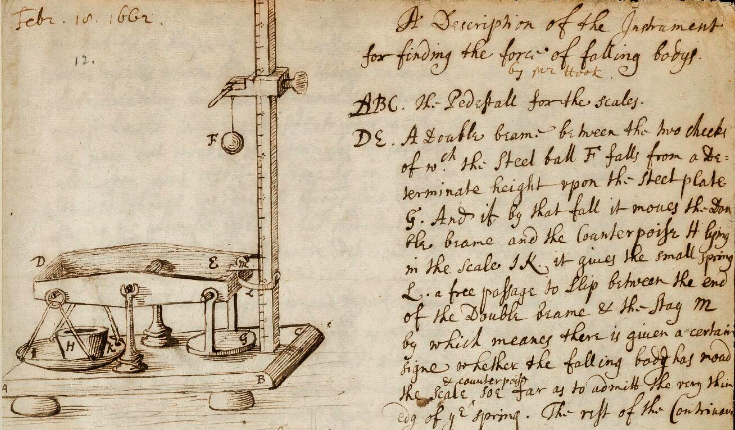 Febr. 18. 1662.
12.
A Description of the Instrument
for finding the force of falling bodys.
by mr Hook.
ABC. the Pedestall for the scales.
DE. A Double beame between the two cheeks
of wch the Steel ball F falls from a De-
terminate height upon the Steel plate
G. And if by that fall it moves the Dou
ble beame and the Counterpoise H lying
in the scale IK it gives the small spring
L. a free passage to slip between the end
of the Double beame & the Stay M
by which meanes there is given a certain
signe whether the falling body has movd
& counterpoise
the scale soe far as to admitt the very thin
edg of ye spring. The rest of the Contrivan
F
D
E
m
L
H
I
K
G
C
A
B